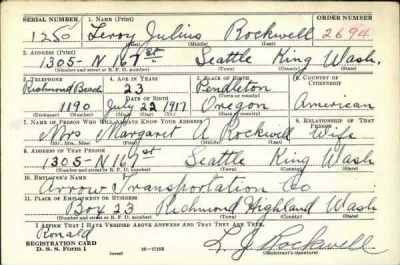 SERIAL NUMBER 1. NAME (Print) ORDER NUMBER
1250 Leroy Julius Rockwell 2694
(First) (Middle) (Last)
2. ADDRESS (Print)
1305-N 167st Seattle King Wash.
(Number and street or R. F. D. number) (Town) (County) (State)
3. TELEPHONE 4. AGE IN YEARS 5. PLACE OF BIRTH 6. COUNTRY OF CITIZENSHIP
Richmond Beach 23 Pendleton
(Exchange) DATE OF BIRTH (Town or county)
1190 July 22 1917 Oregon American
(Number) (Mo.) (Day) (Yr.) (State or country)
7. NAME OF PERSON WHO WILL ALWAYS KNOW YOUR ADDRESS 8. RELATIONSHIP OF THAT PERSON
Mrs Margaret A Rockwell Wife
(Mr., Mrs., Miss) (First) (Middle) (Last)
9. ADDRESS OF THAT PERSON
1305-N 167st Seattle King Wash
(Number and street or R. F. D. number) (Town) (County) (State)
10. EMPLOYER'S NAME
Arrow Transportation Co
11. PLACE OF EMPLOYMENT OR BUSINESS
Box 23 Richmond Highland Wash
(Number and street or R. F. D. number) (Town) (County) (State)
I AFFIRM THAT I HAVE VERIFIED ABOVE ANSWERS AND THAT THEY ARE TRUE.
Ronald
REGISTRATION CARD
D. S. S. Form 1
(over)
L J Rockwell
(Registrant's signature)